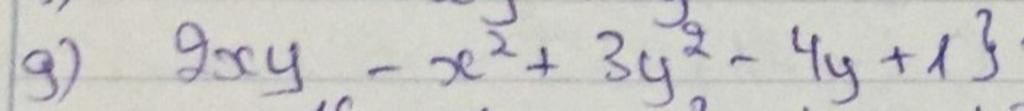 g) 2xy - x² + 3y² - 4y + 1}